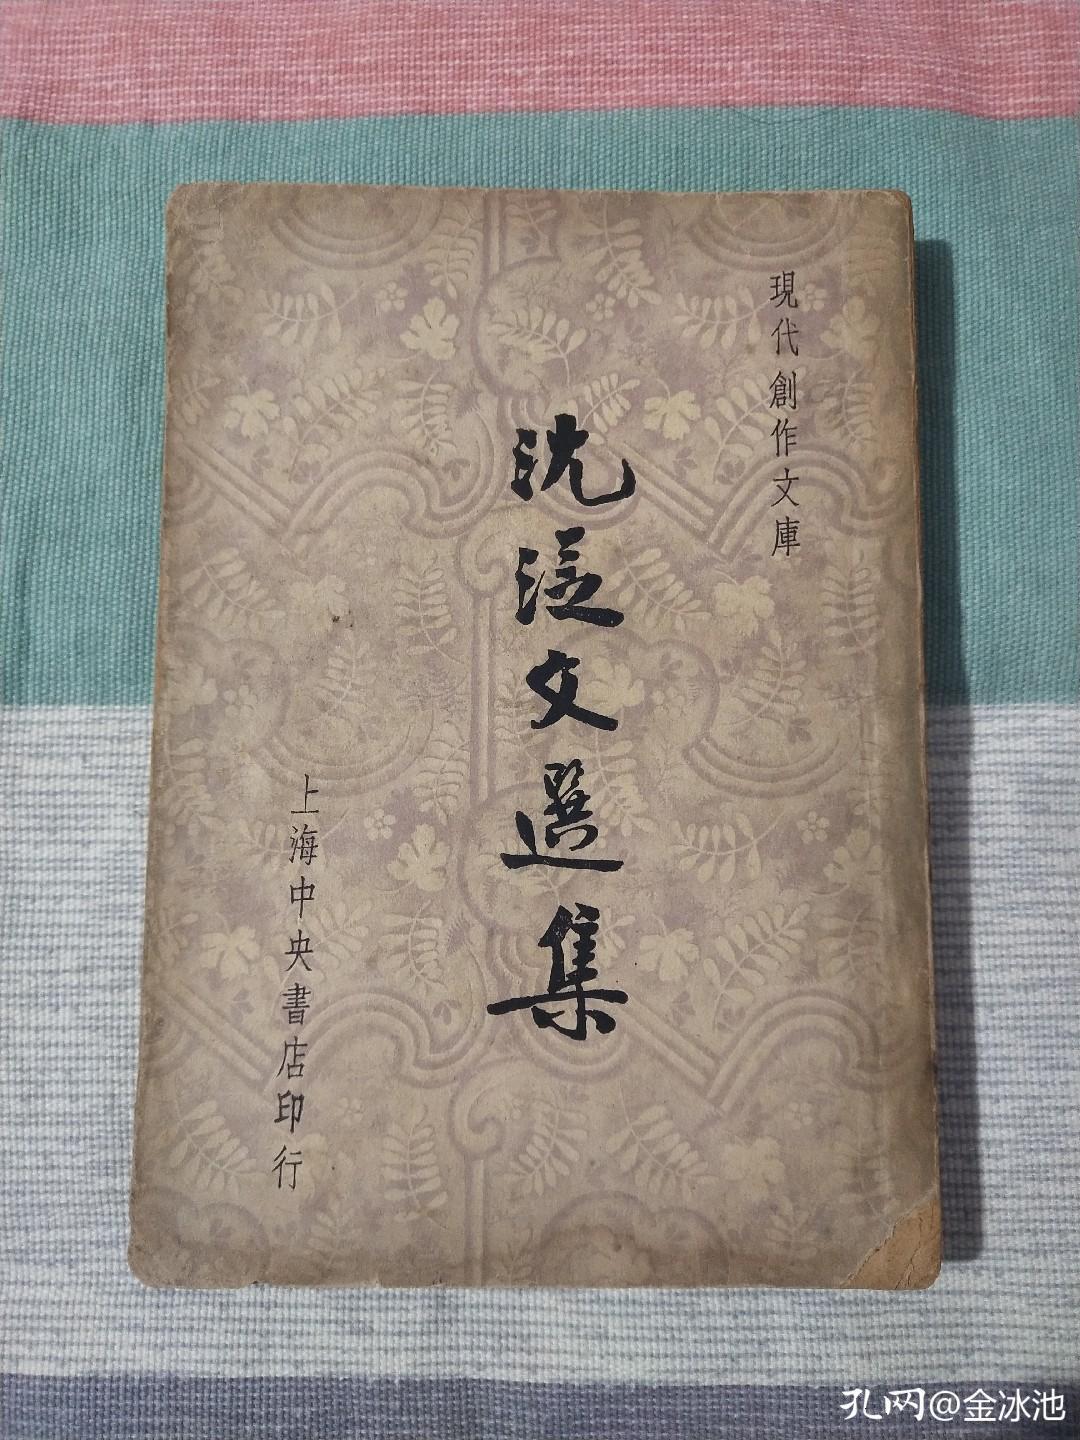 現代創作文庫
沈從文選集
上海中央書店印行
孔网@金冰池